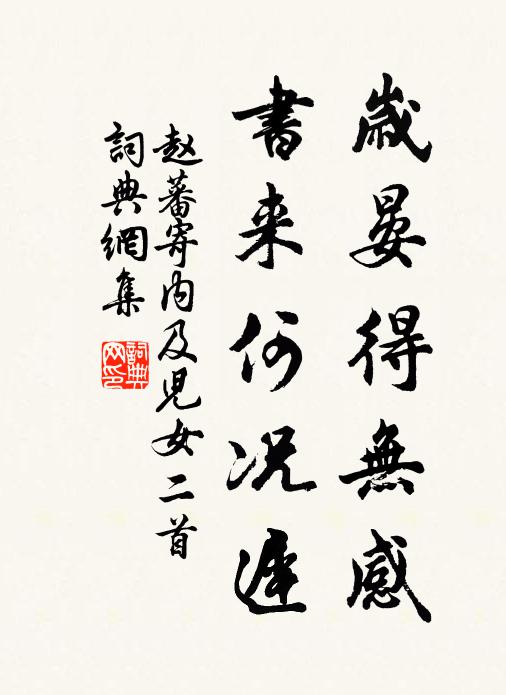 歳晏得無感
書来何况遲
赵蕃寄内及児女二首
詞典網集
詞典网印